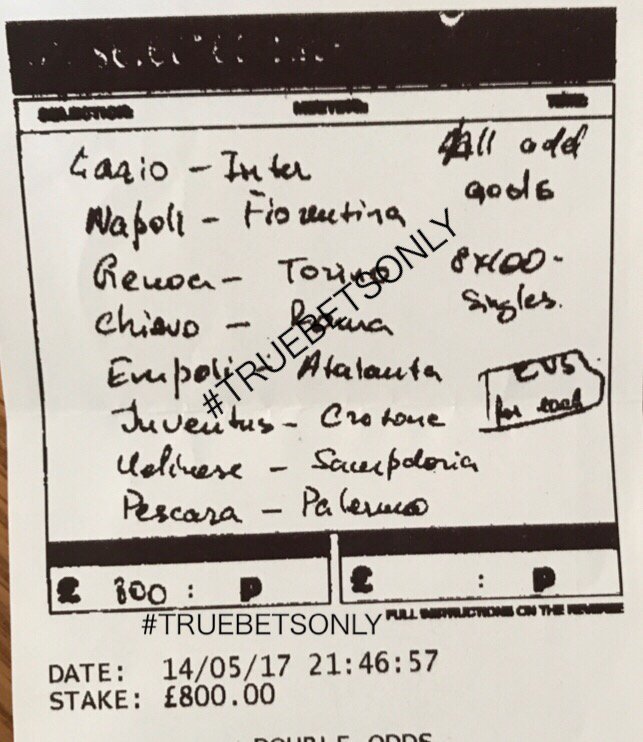 SELECTION: MEETING: TIME:
Lazio - Inter
All odd
goals
Napoli - Fiorentina
Genoa - Torino
8x100-
Singles.
Chievo - Roma
Empoli - Atalanta
EVS
for each
Juventus - Crotone
Udinese - Sampdoria
Pescara - Palermo
#TRUEBETSONLY
£ 800 : P £ : P
FULL INSTRUCTIONS ON THE REVERSE
#TRUEBETSONLY
DATE: 14/05/17 21:46:57
STAKE: £800.00
DOUBLE ODDS